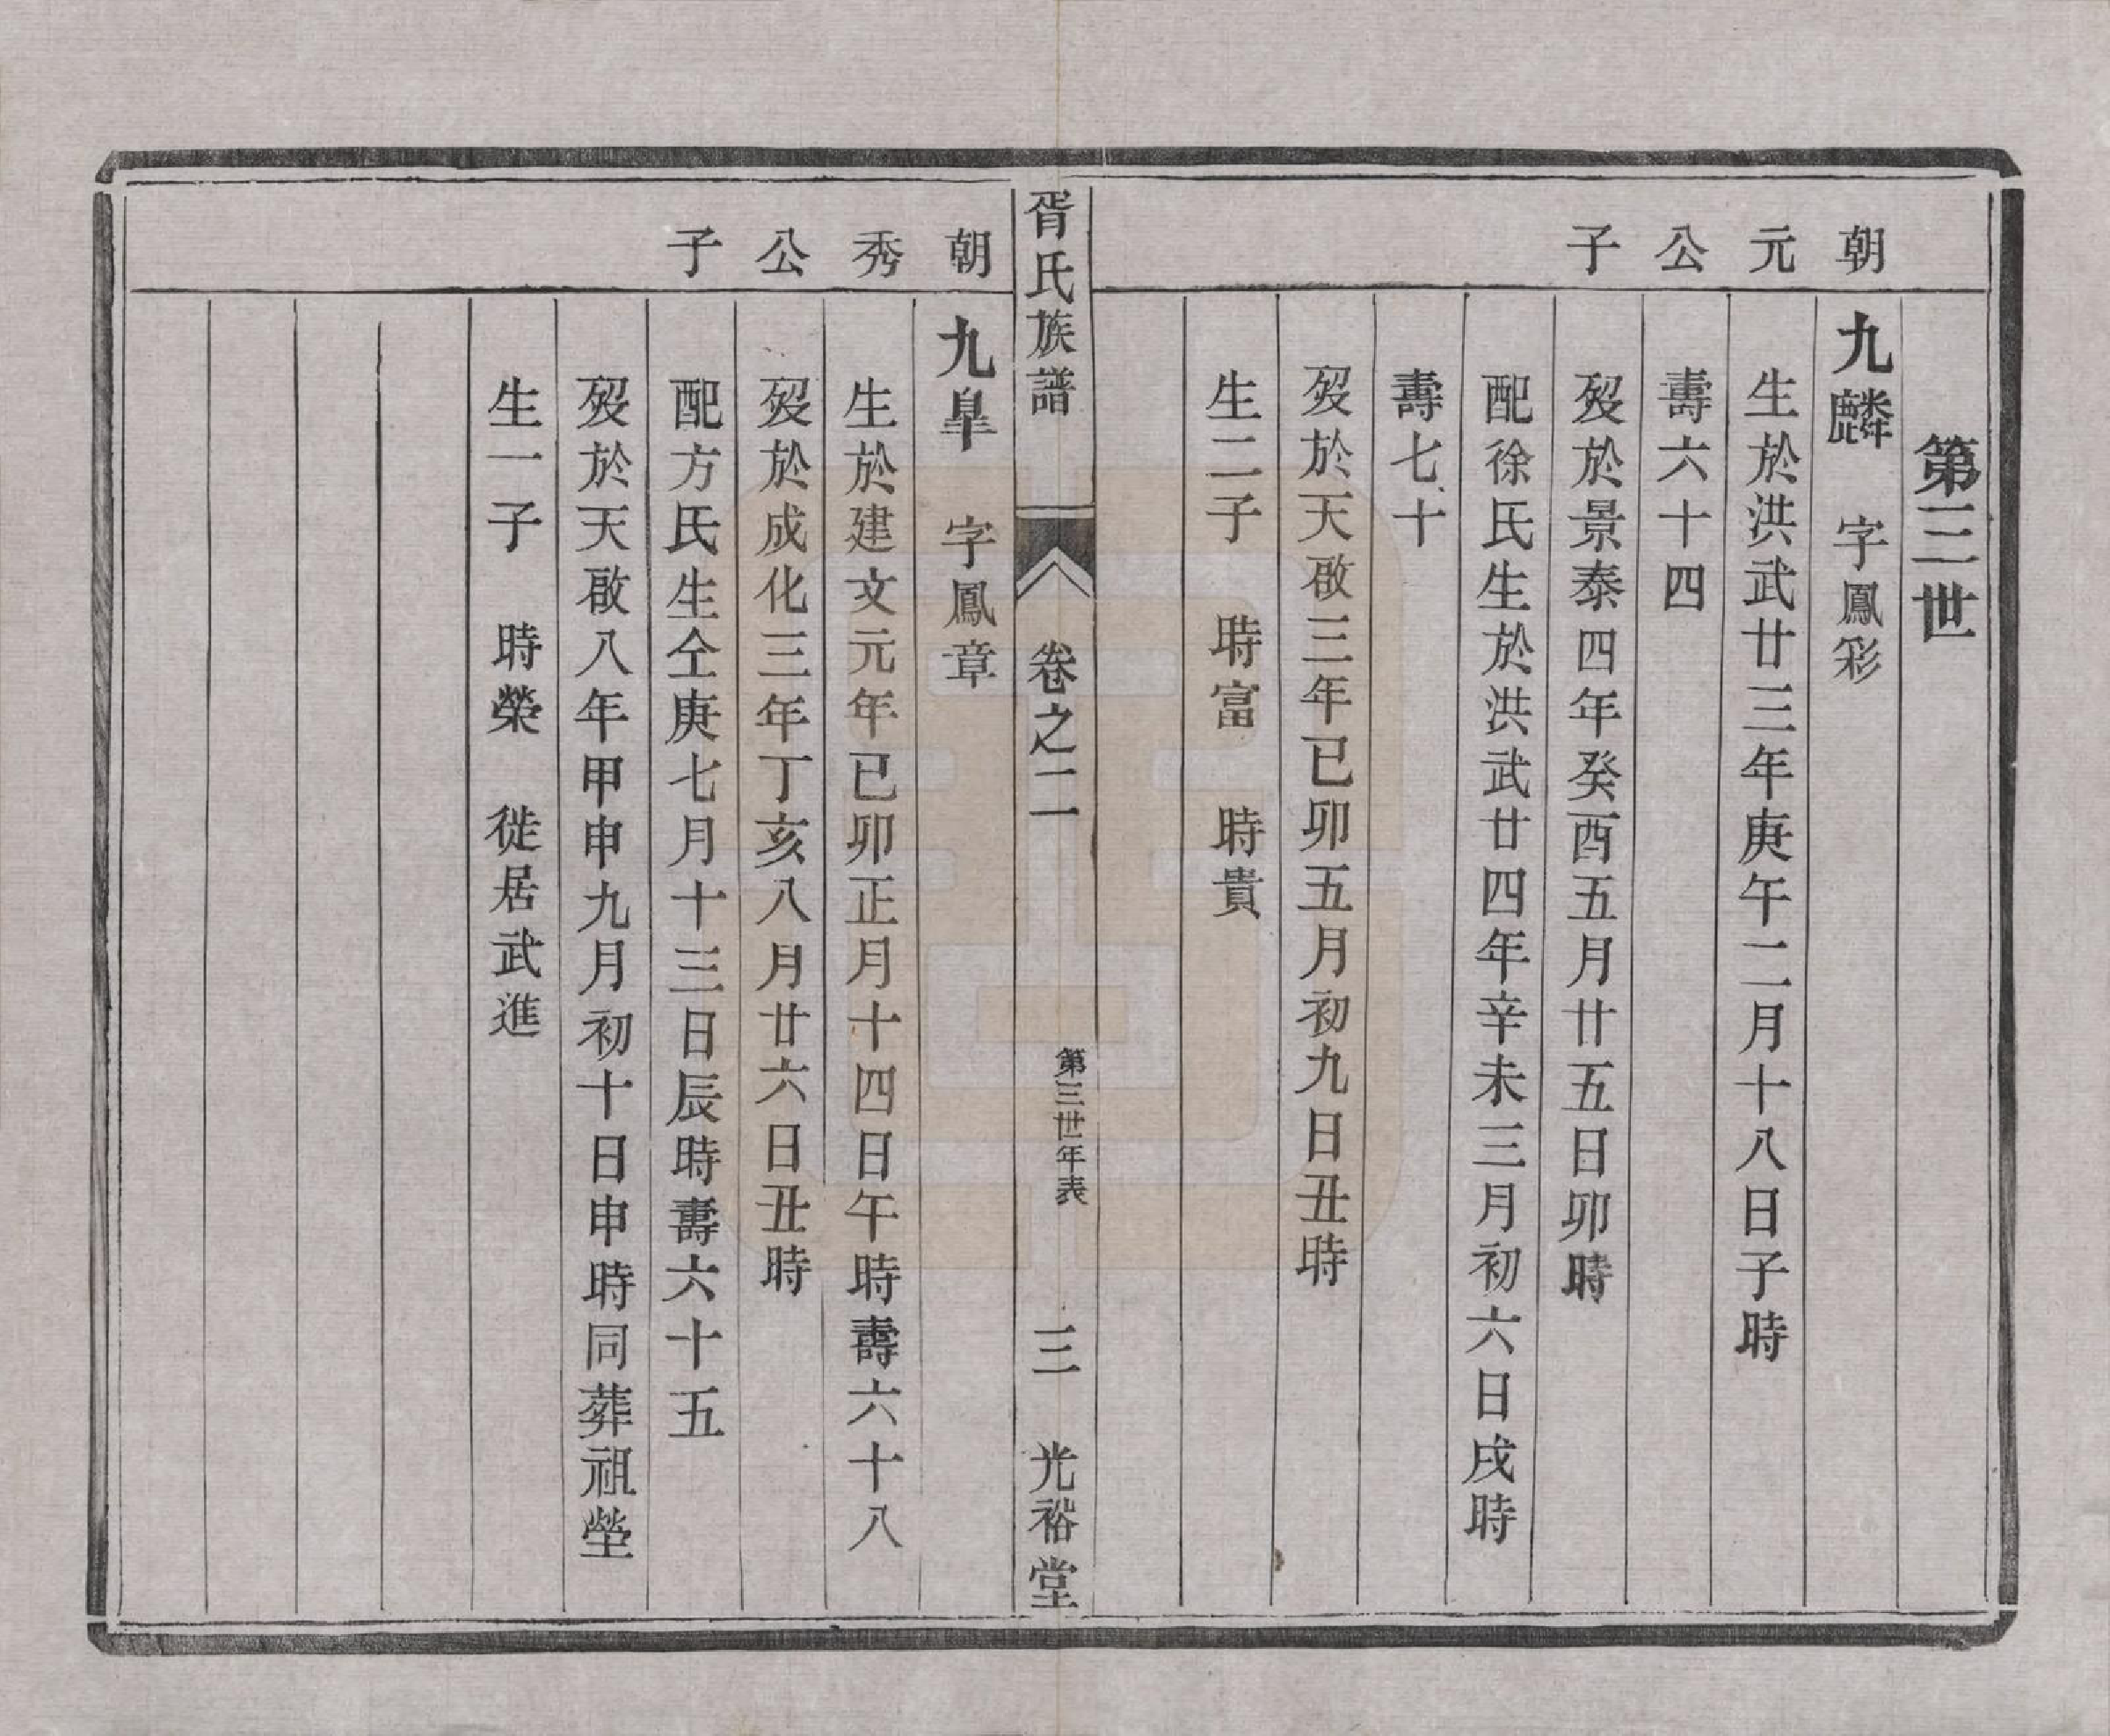 第三世
朝元公子
九麟 字鳳彩
生於洪武廿三年庚午二月十八日子時
壽六十四
歿於景泰四年癸酉五月廿五日卯時
配徐氏生於洪武廿四年辛未三月初六日戌時
壽七十
歿於天啟三年已卯五月初九日丑時
生二子 時富 時貴
胥氏族譜 卷之二 第三世年表 三 光裕堂
朝秀公子
九臯 字鳳章
生於建文元年已卯正月十四日午時壽六十八
歿於成化三年丁亥八月廿六日丑時
配方氏生仝庚七月十三日辰時壽六十五
歿於天啟八年甲申九月初十日申時同葬祖塋
生一子 時榮 徙居武進